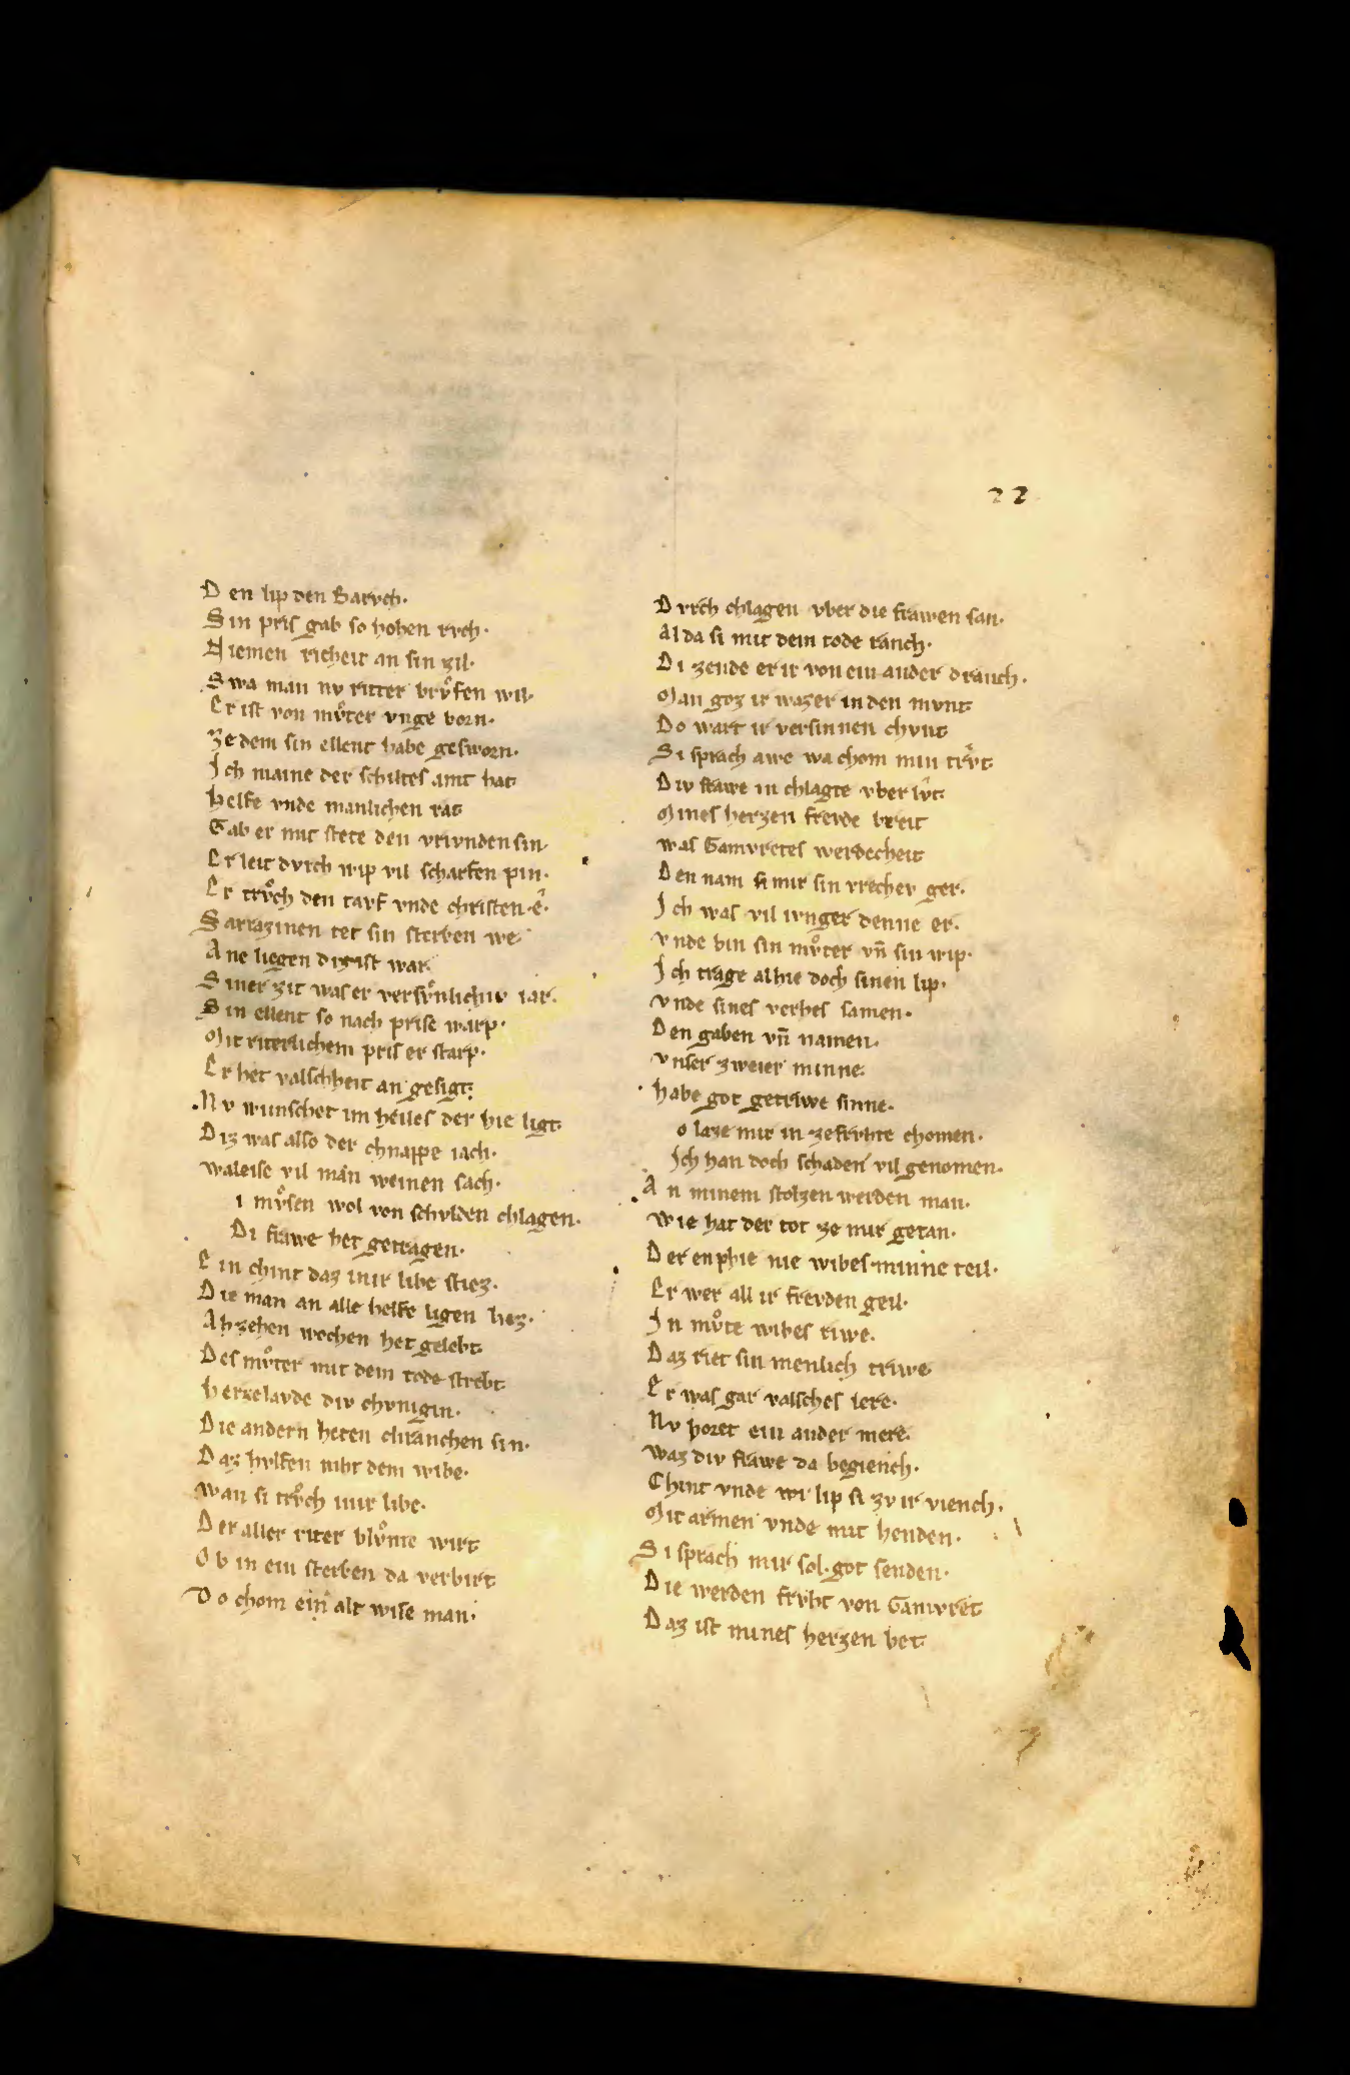 22
D en lip den Barvch.
S in pris gab so hohen rvch.
N iemen richeit an sin zil.
S wa man nv ritter brvͤfen wil.
E r ist von mvͦter vnge born.
Ze dem sin ellent habe gesworn.
J ch maine der schiltes amt hat
helfe vnde manlichen rat
Gab er mit stete den vrivnden sin.
E r leit dvrch wip vil scharfen pin.
E r trvͦch den tavf vnde christen ê.
S arrazinen tet sin sterben we
A ne liegen diz ist war.
S iner zit was er versvͦnlichiv iar.
S in ellent so nach prise warp.
Mit riterlichem pris er starp.
E r het valschheit an gesigt.
N v wunschet im heiles der hie ligt.
D iz was also der chnappe iach.
waleise vil man weinen sach.
i mvͤsen wol von schvlden chlagen.
Di frawe het getragen.
E in chint daz in ir libe stiez.
D ie man an alle helfe ligen liez.
A hzehen wochen het gelebt
D es mvͦter mit dem tode strebt
h erzelavde div chvnigin.
D ie andern heten chranchen sin.
D az hvlfen niht dem wibe.
wan si trvͦch in ir libe.
D er aller riter blvͦme wirt
O b in ein sterben da verbirt
D o chom ein alt wise man.
D vrch chlagen vber die frawen san.
Al da si mit dem tode ranch.
Di zende er ir von ein ander dranch.
Man goz ir wazer in den mvnt
Do wart ir versinnen chvnt
Si sprach awe wa chom min trvͦt
Div frawe in chlagte vber lvͦt
Mines herzen frevde breit
was Gamvretes werdecheit
Den nam si mir sin vrechev ger.
J ch was vil ivnger denne er.
v nde bin sin mvͦter vn̄ sin wip.
J ch trage alhie doch sinen lip.
v nde sines verhes samen.
Den gaben vn̄ namen.
v nser zweier minne.
habe got getriwe sinne.
o laze mir in ze frvhte chomen.
Jch han doch schaden vil genomen.
A n minem stolzen werden man.
Wie hat der tot ze mir getan.
D er enphie nie wibes minne teil.
E r wer all ir frevden geil.
J n mvͦte wibes riwe.
D az riet sin menlich triwe
E r was gar valsches lere.
Nv horet ein ander mere.
waz div frawe da begiench.
Chint vnde wr lip si zv ir viench.
Mit armen vnde mit henden.
S i sprach mir sol got senden.
D ie werden frvht von Gamvret
D az ist mines herzen bet